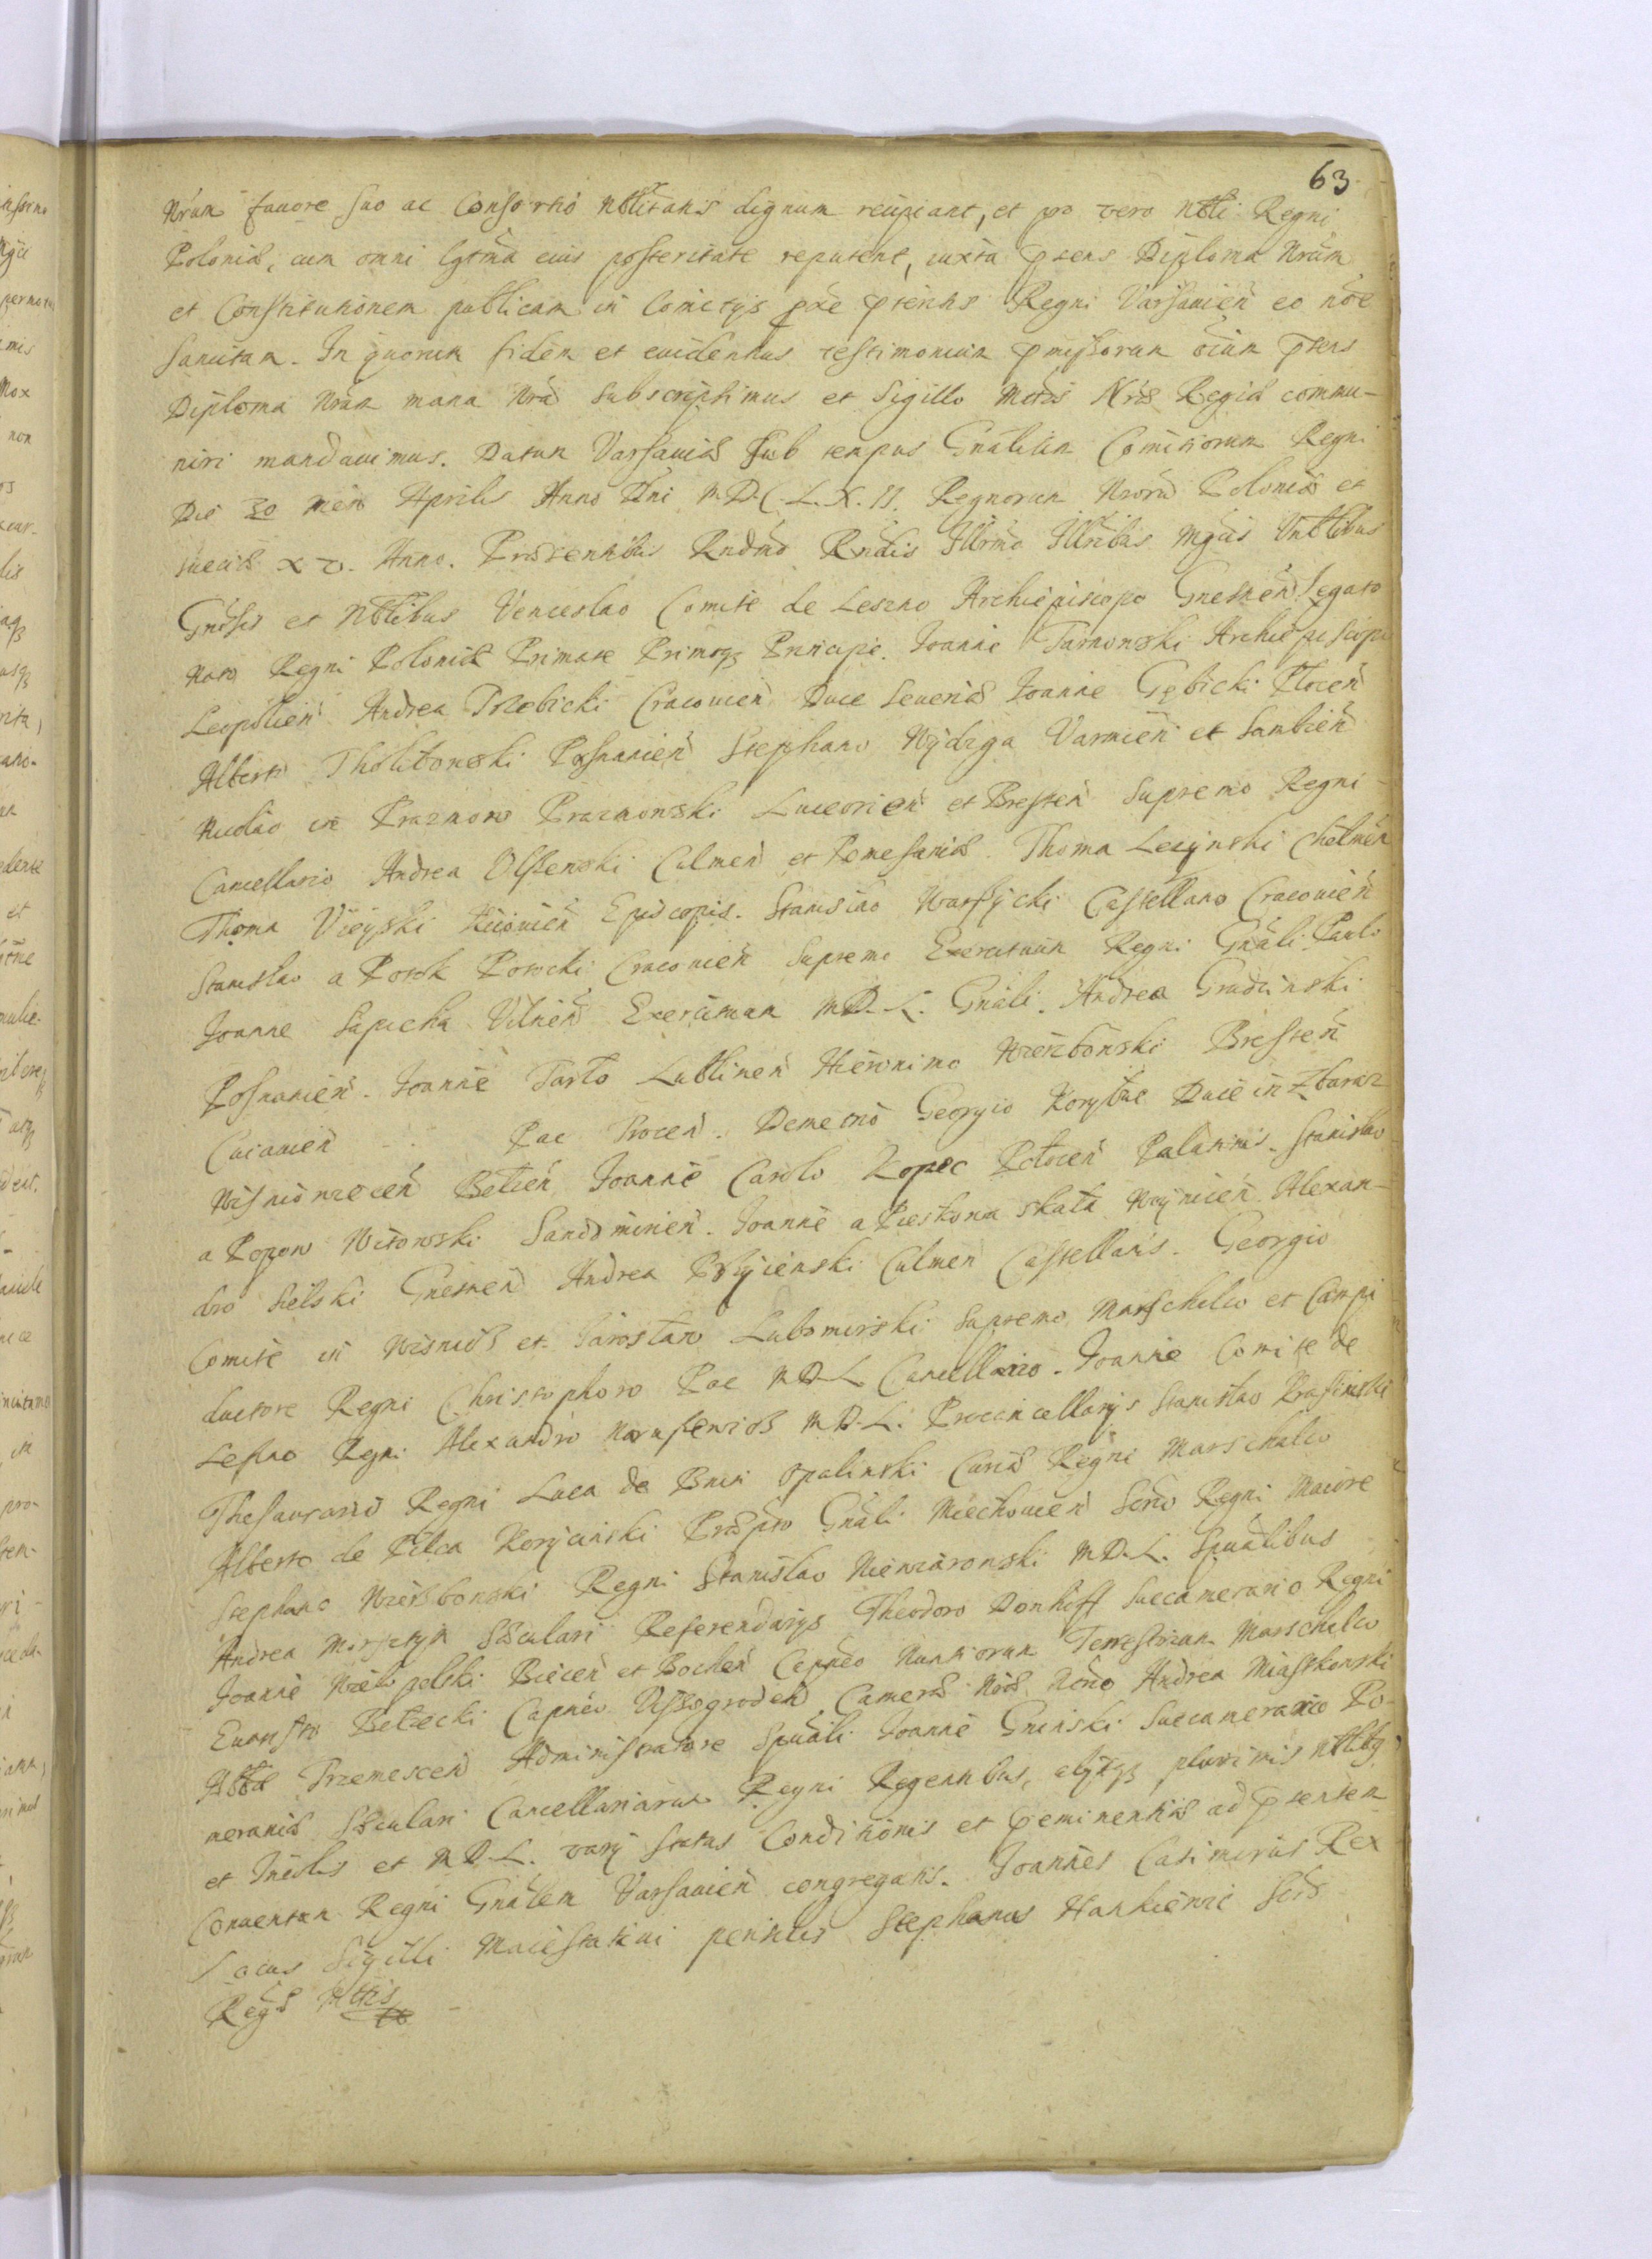 63
Nrum fauore suo ac Consortio Nobilitatis dignum recipiant, et pro vero Nobili Regni
Poloniæ, cum omni lgtma eius posteritate reputent, iuxta psens Diploma Nrum
et Constitutionem publicam in Comitijs pntis Regni Varsauien eo noe
sancitam. In quorum fidem et euidentius testimonium pmissorum oium psens
Diploma Nrum manu Nra subscripsimus et Sigillo Mttis Nræ Regiæ commu-
niri mandauimus. Datum Varsauiæ sub tempus Gnalium Comitiorum Regni
Die 30 Men Aprilis Anno Dni M.D.C.L.X.II. Regnorum Nrorum Poloniæ et
Sueciæ XV. Anno. Præsentibus Rndmo Rndis Illrmo Illribus Mgcis Vnblibus
Gnosis et Noblibus Venceslao Comite de Leszno Archiepiscopo Gnesnen Legato
Nato Regni Poloniæ Primate Primoq Principe. Joanne Tarnowski Archiepiscopo
Leopolien Andrea Trzebicki Cracouien Duce Seueriæ Joanne Gębicki Plocen
Alberto Tholibowski Posnanien Stephano Wydzga Varmien et Sambien
Nicolao in Prazmow Prazmowski Luceorien et Bresten Supremo Regni
Cancellario Andrea Olszewski Culmen et Pomesaniæ. Thoma Lezynski Chelmen
Thoma Vieyski Kiiouien Episcopis. Stanislao Warszycki Castellano Cracouien
Stanislao a Potok Potocki Cracouien Supremo Exercituum Regni Gnali. Paulo
Joanne Sapieha Vilnen Exercituum M.D.L. Gnali. Andrea Grudzinski
Posnanien. Joanne Tarlo Lublinen Hieronimo Wierzbowski Bresten
Cuiauien .. Pac Trocen. Demetrio Georgio Korybut Duce in Zbaraz
Wisniowiecen Belzen Joanne Carolo Kopec Polocen Palatinis. Stanislao
a Popow Witowski Sandomirien. Joanne a Pieskowa skała Woynicen Alexan-
dro Sielski Gnesnen Andrea Przyiemski Culmen Castellanis. Georgio
Comite in Wisnicz et Jaroslaw Lubomirski Supremo Marschalco et Campi
ductore Regni Christophoro Pac M.D.L. Cancellario. Joanne Comite de
Leszno Regni Alexandro Naruszewicz M.D.L. Procancellarijs Stanislao Krasinski
Thesaurario Regni Luca de Bnin Opalinski Curiæ Regni Marschalco
Alberto de Pilca Korycinski Præpto Gnali Miechouien Scrio Regni Maiore
Stephano Wierzbowski Regni Stanislao Niewiarowski M.D.L. Spualibus
Andrea Morsztyn Sæculari Referendarijs Theodoro Donhoff Succamerario Regni
Joanne Wielopolski Biecen et Bochen Capneo Nuntiorum Terrestrium Marschalco
Euaristo Belzecki Capneo Vissogroden Cameræ Nræ Nrio Andrea Miaskowski
Abbte Przemescen Administratore Spuali Joanne Gninski Succamerario Po-
meraniæ Sæculari Cancellariarum Regni Regentibus, alijsq plurimis Nobilibq
et Incolis et M.D.L. varij status Conditionis et peminentiæ ad psentem
Conuentum Regni Gnalem Varsauien congregatis. Joannes Casimirus Rex
Locus Sigilli Maiestatici pensilis Stephanus Hankiewic Scrs
Regæ Mttis